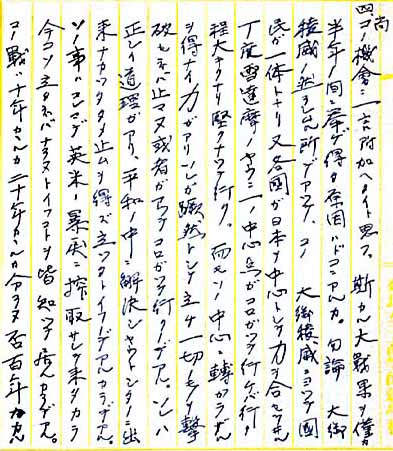 尚
四コノ機會ニ一言附加ヘタイト思フ。斯カル大戰果ヲ僅カ
半年ノ間ニ擧ゲ得タ原因ハドコニアルカ。勿論 大御
稜威ノ然ラシムル所デアツテ、コノ 大御稜威ニヨツテ國
民ガ一体トナリ又各國ガ日本ヲ中心トシテ力ヲ合セ
丁度雪達摩ノヤウニ一ノ中心点ガコロガツテ行ケバ行ク
程大キクナリ堅クナツテ行ク。而モソノ中心ニ轉ガラザル
ヲ得ナイ力ガアリソレガ蹶然トシテ立チ一切ノモノヲ撃
破セネバ止マヌ或者ガアツテコロガツテ行クノデアル。ソレハ
正シイ道理ガアリ、平和ノ中ニ解決シヤウトシタノニ出
来ナカツタタメ止ムヲ得ズ立ツタトイフコトデアルカラデアル。
ソノ事ハコレマデ英米ノ暴戻ニ搾取サレテ来タカラ
今コソ立タネバナラヌトイフコトヲ皆知ツテ居ルカラデアル。
コノ戰ハ十年カカルカ二十年カカルカ分ラヌ否百年カカル